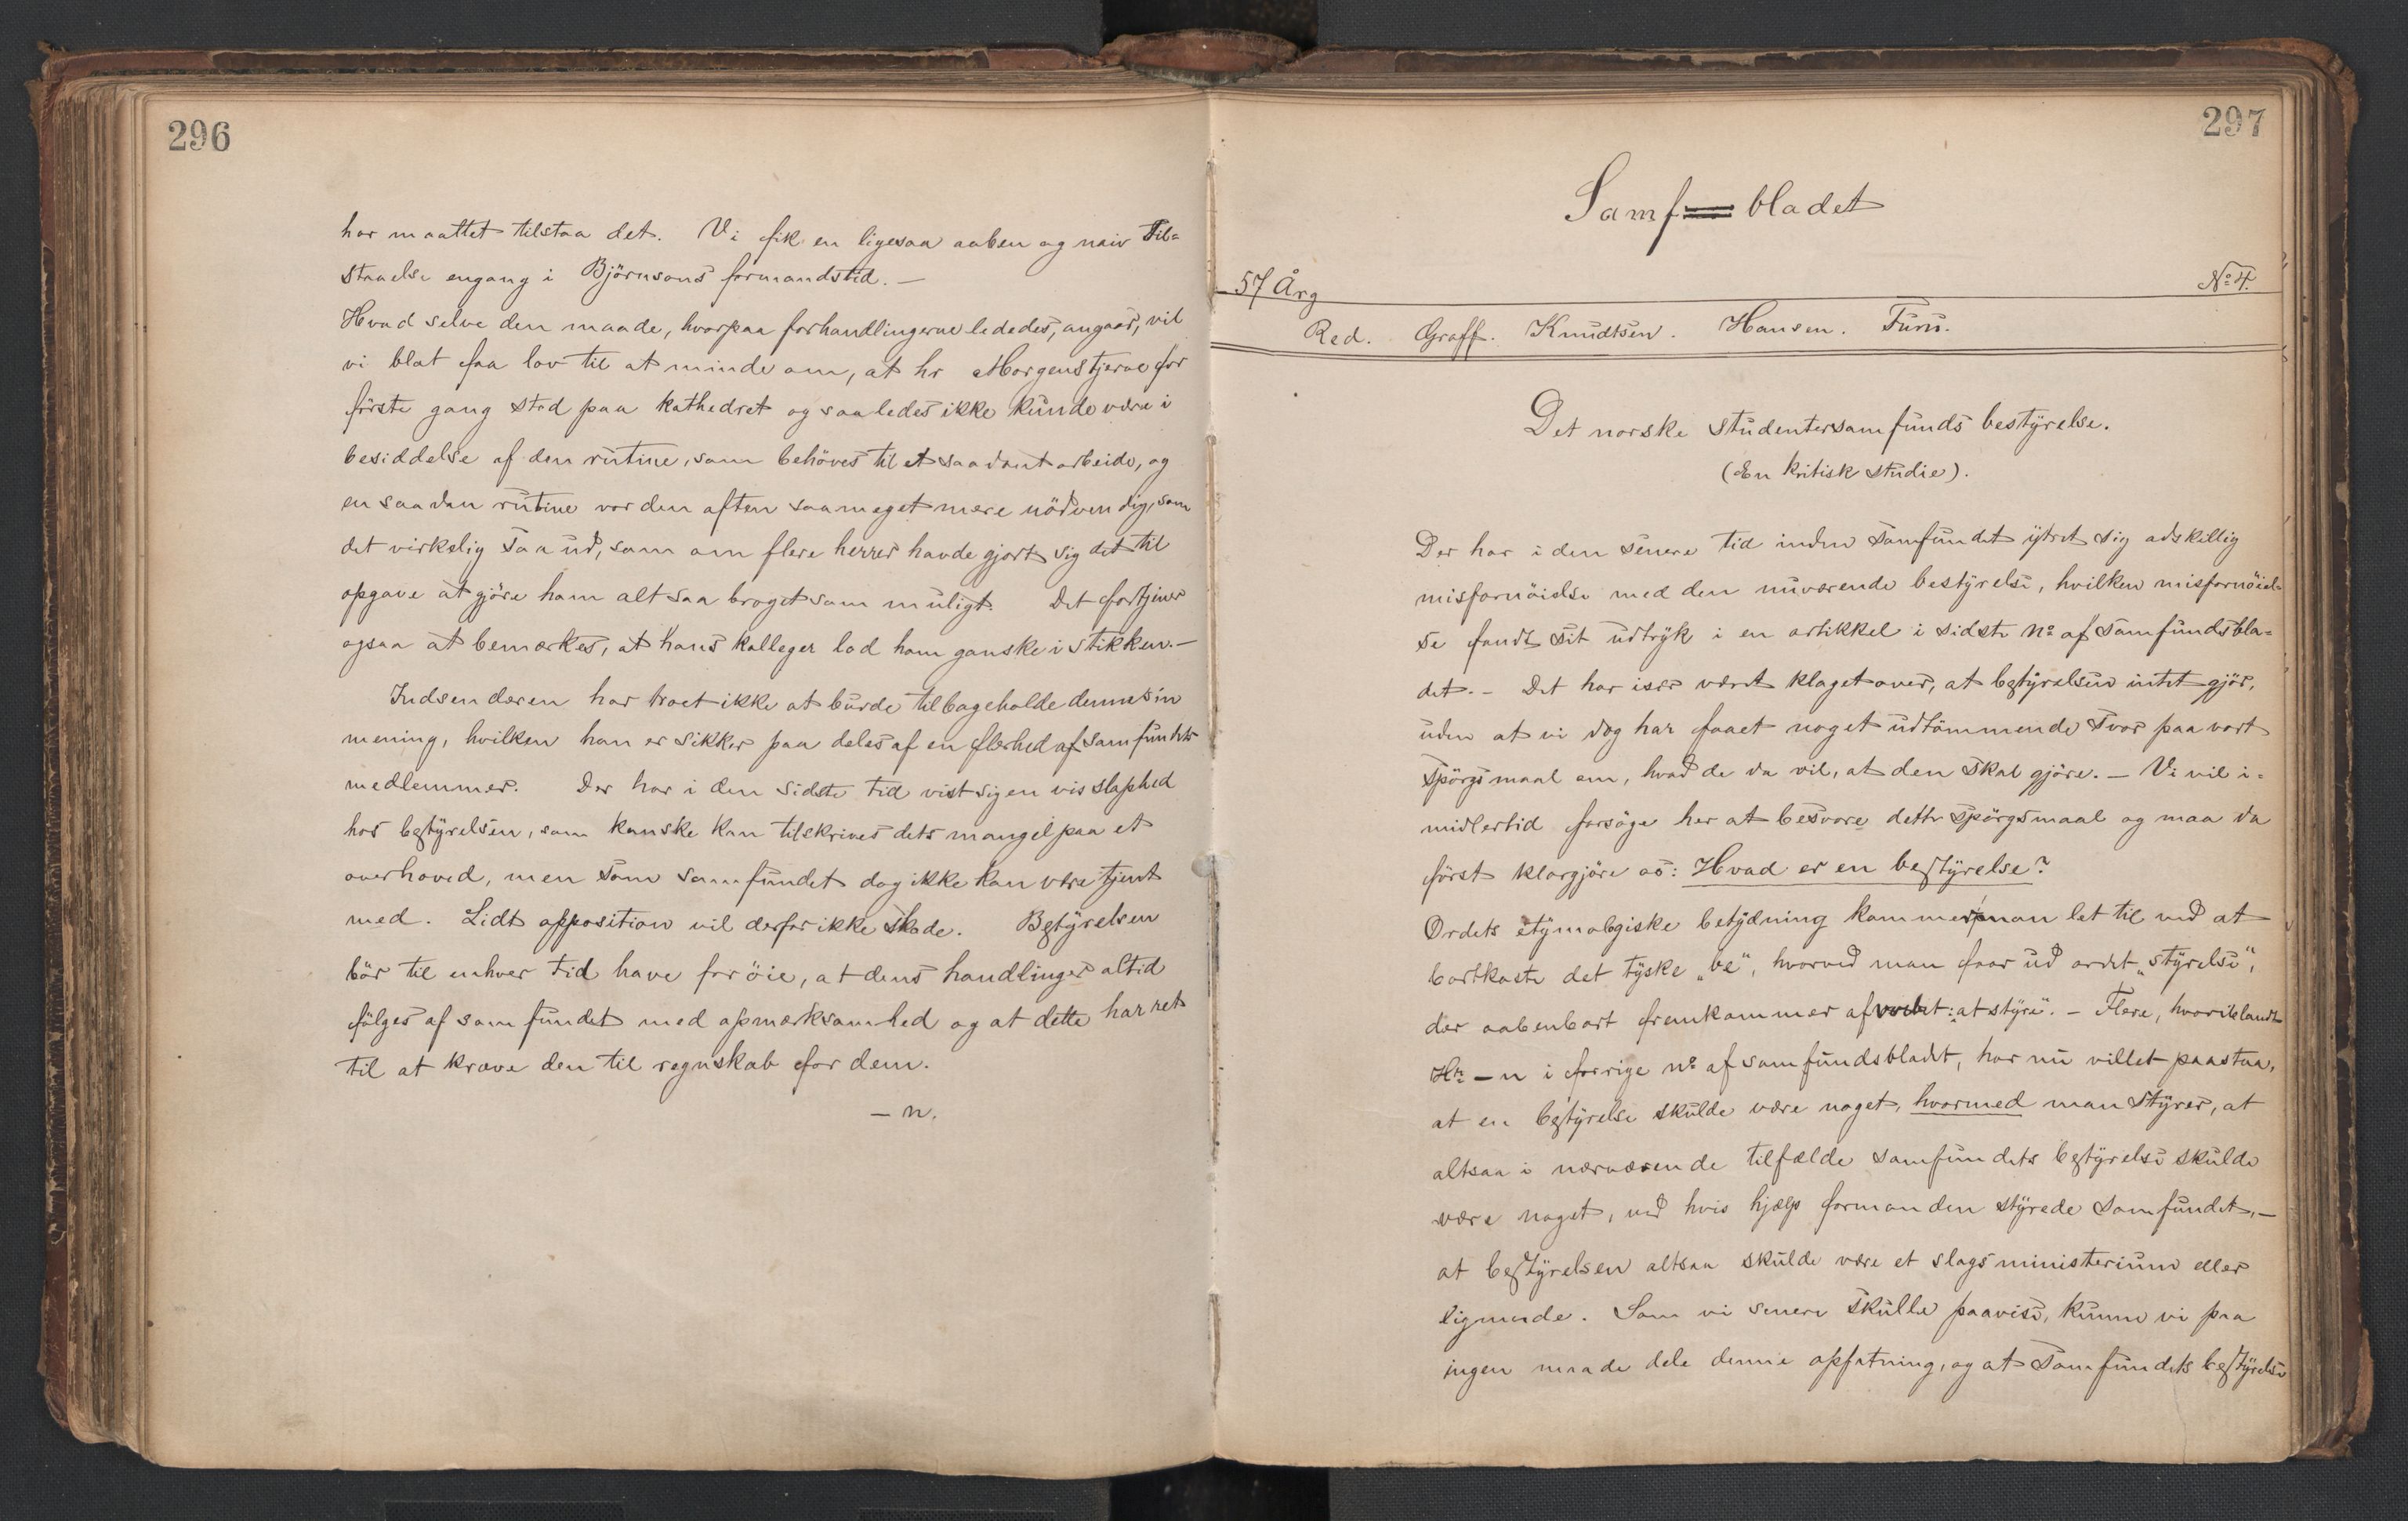 296
har maattet tilstaa det. Vi fik en ligesaa aaben og naiv Til=
staaelse engang i Björnsons formandstid. —
Hvad selve den maade, hvorpaa forhandlingerne lededes, angaar, vil
vi blot faa lov til at minde om, at hr Morgenstjerne for
förste gang stod paa kathedret og saaledes ikke kunde være i
besiddelse af den rutine, som behöves til et saadant arbeide, og
en saadan rutine var den aften saameget mere nödvendig, som
det virkelig saa ud, som om flere herrer havde gjort sig det til
opgave at gjöre ham alt saa broget som muligt. Det fortjener
ogsaa at bemærkes, at hans kolleger lod ham ganske i stikken. —
Indsenderen har troet ikke at burde tilbageholde denne sin
mening, hvilken han er sikker paa deles af en flerhed af samfundets
medlemmer. Der har i den sidste tid vist sig en vis slaphed
hos bestyrelsen, som kanske kan tilskrives dets mangel paa et
overhoved, men som samfundet dog ikke kan være tjent
med. Lidt opposition vil derfor ikke skade. Bestyrelsen
bör til enhver tid have for öie, at dens handlinger altid
fölges af samfundet med opmærksomhed og at dette har ret
til at kræve den til regnskab for dem.
— n.
297
Samf=bladet
57 Årg No 4.
Red. Graff. Knudtsen. Hansen. Furu.
Det norske studentersamfunds bestyrelse.
(En kritisk studie).
Der har i den senere tid inden samfundet ytret sig adskillig
misfornöielse med den nuværende bestyrelse, hvilken misfornöiel=
se fandt sit udtryk i en artikkel i sidste No af samfundsbla=
det. — Det har især været klaget over, at bestyrelsen intet gjör,
uden at vi dog har faaet noget udtömmende svar paa vort
spörgsmaal om, hvad de da vil, at den skal gjöre. — Vi vil i=
midlertid forsöge her at besvare dette spörgsmaal og maa da
först klargjöre os: Hvad er en bestyrelse?
Ordets etymologiske betydning kommer man let til ved at
bortkaste det tyske „be“, hvorved man faar ud ordet „styrelse“,
der aabenbart fremkommer af verbet: „at styre“. — Flere, hvoriblandt
Hr — n i forrige No af samfundsbladet, har nu villet paastaa,
at en bestyrelse skulde være noget, hvormed man styrer, at
altsaa i nærværende tilfælde samfundets bestyrelse skulde
være noget, ved hvis hjælp formanden styrede samfundet, —
at bestyrelsen altsaa skulde være et slags ministerium eller
lignende. Som vi senere skulle paavise, kunne vi paa
ingen maade dele denne opfatning, og at samfundets bestyrelse